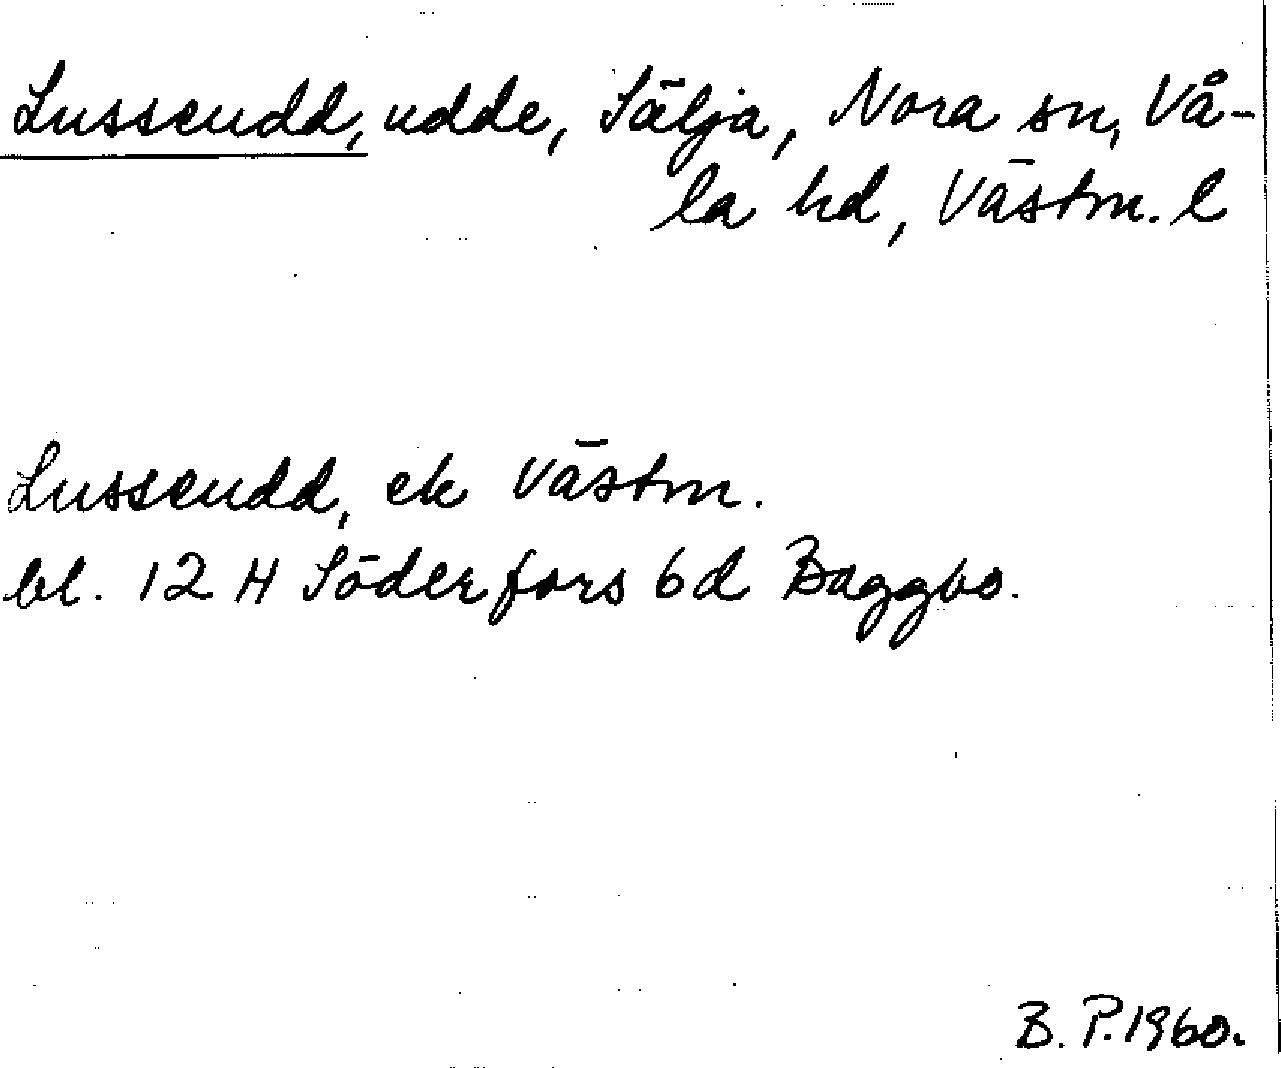 Lussendd, udde, Sälja, Nora sn, Vå-
la hd, Västm. l
Lussendd, ek Västm.
bl. 12 H Söderfors 6d Baggbo.
B. P. 1960.